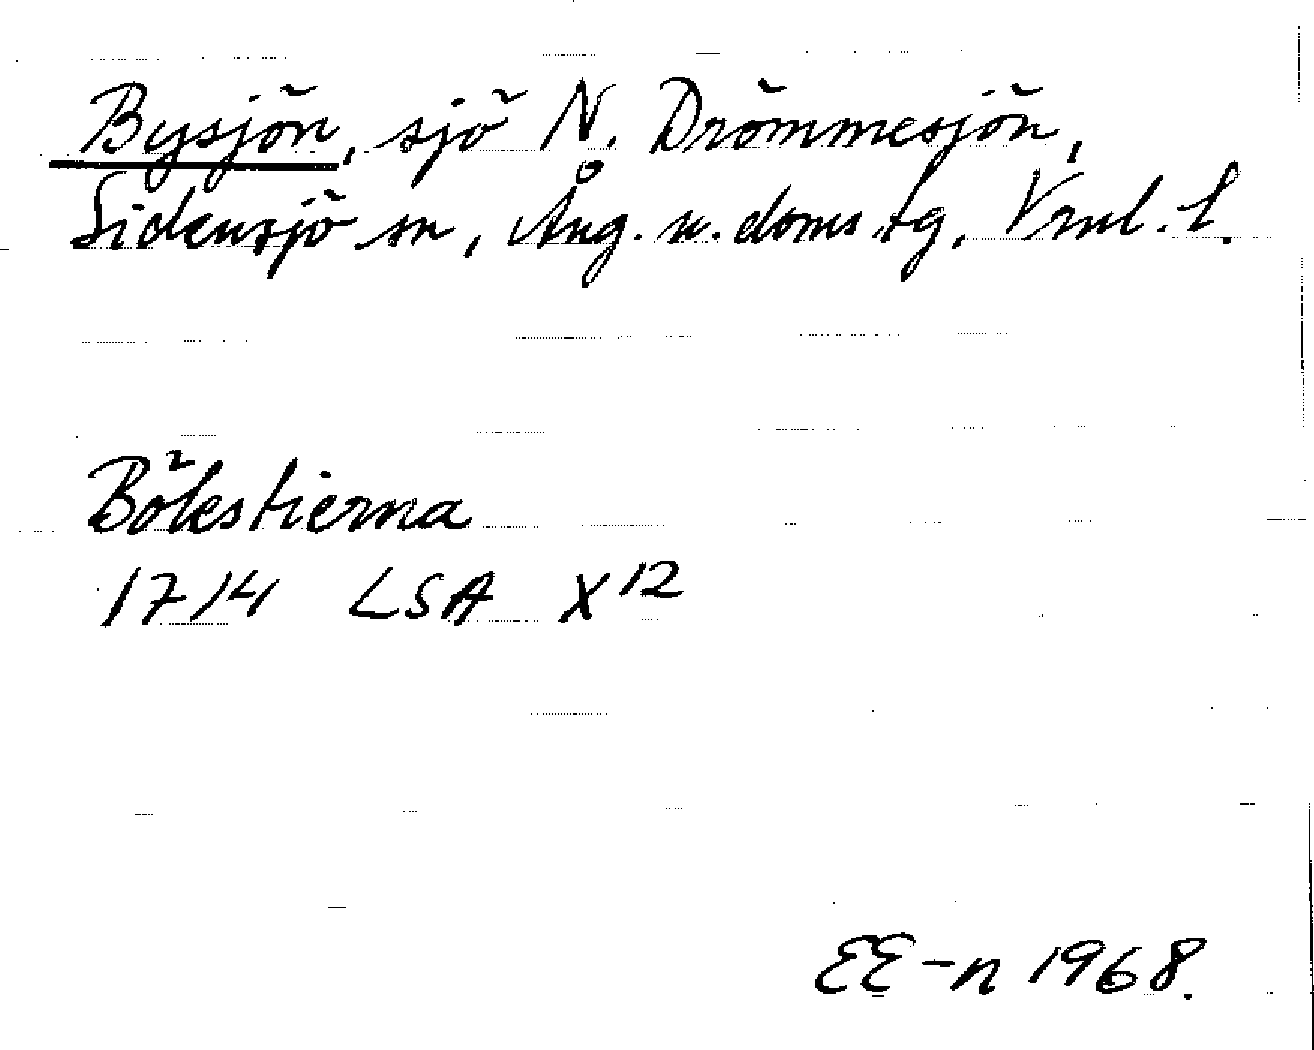 Bysjön, sjö N. Drömmesjön,
Sidensjö sn, Ång. n. doms.tg, Vnml. l.
Bölestierna
1714 LSA X12
EE-n 1968.